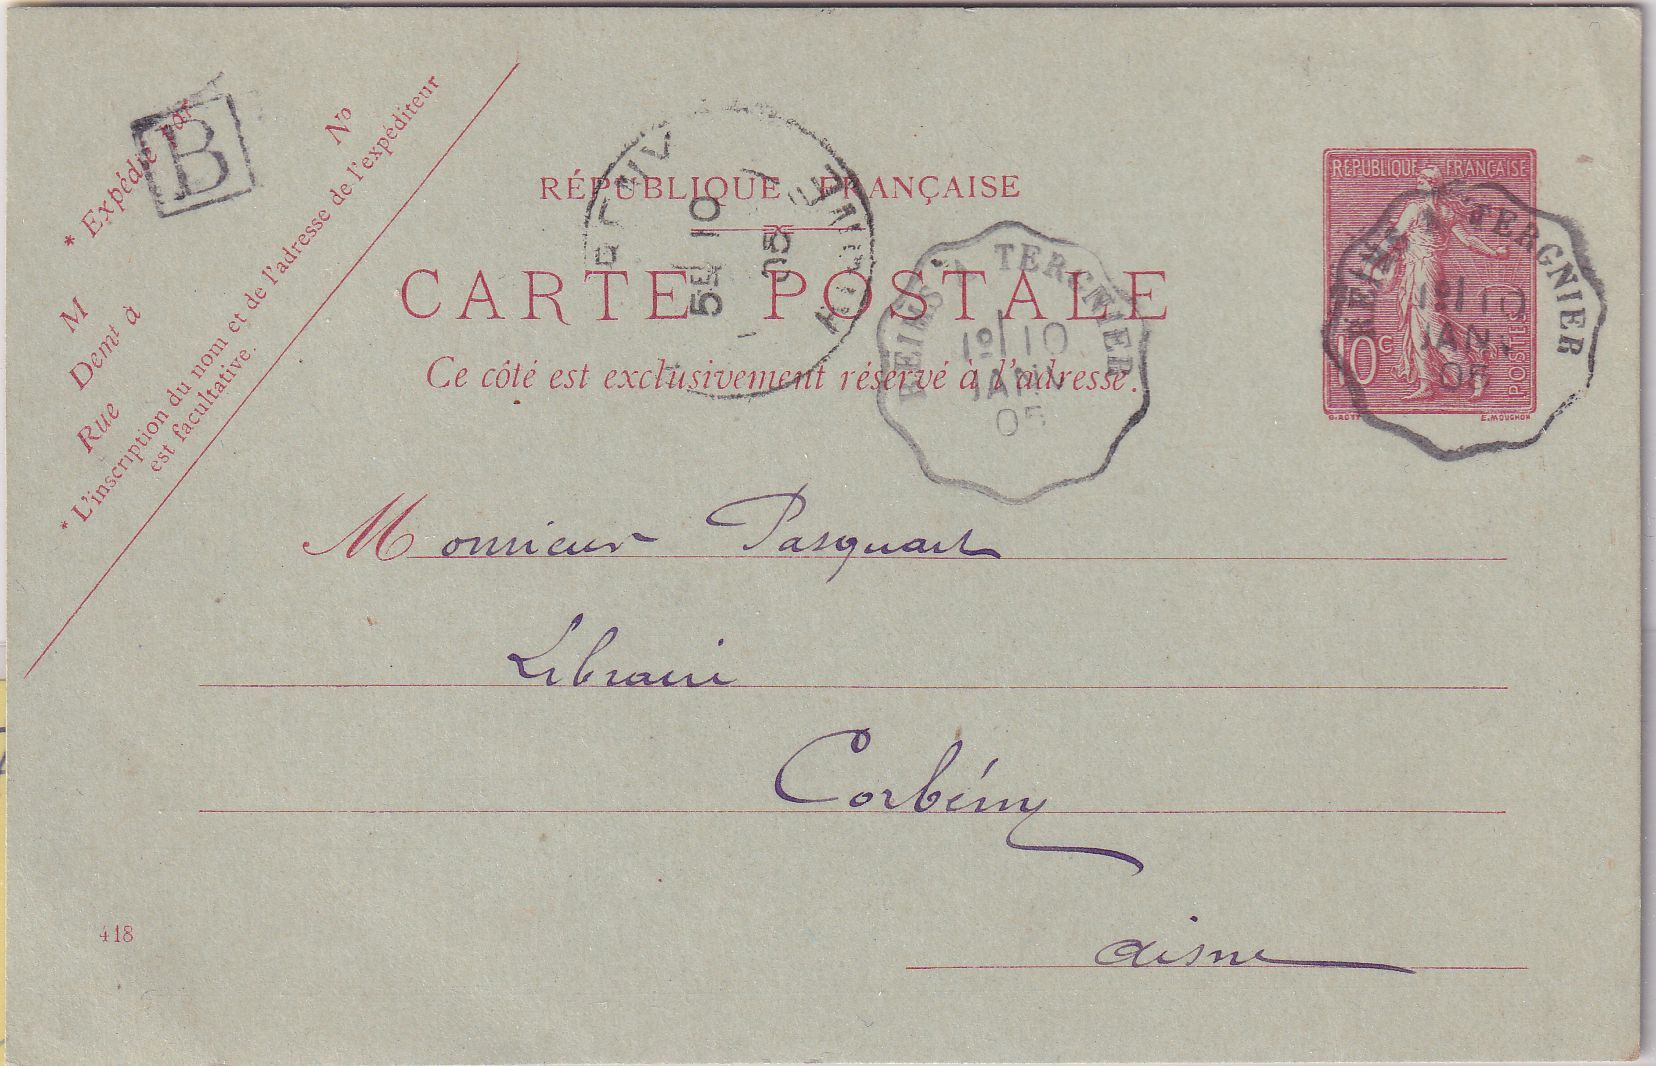 * Expédié par
B
M
N°
Demt à
Rue
* L'inscription du nom et de l'adresse de l'expéditeur
est facultative.
RÉPUBLIQUE FRANÇAISE
CARTE POSTALE
Ce côté est exclusivement réservé à l'adresse.
5E 10
05
REIMS A TERGNIER
1º 10
JANV
05
REPUBLIQUE FRANÇAISE
10 C
POSTES
O. ROTY
E. MOUCHON
REIMS A TERGNIER
1º 10
JANV
05
Monsieur Pasquart
Libraire
Corbény
aisne
418